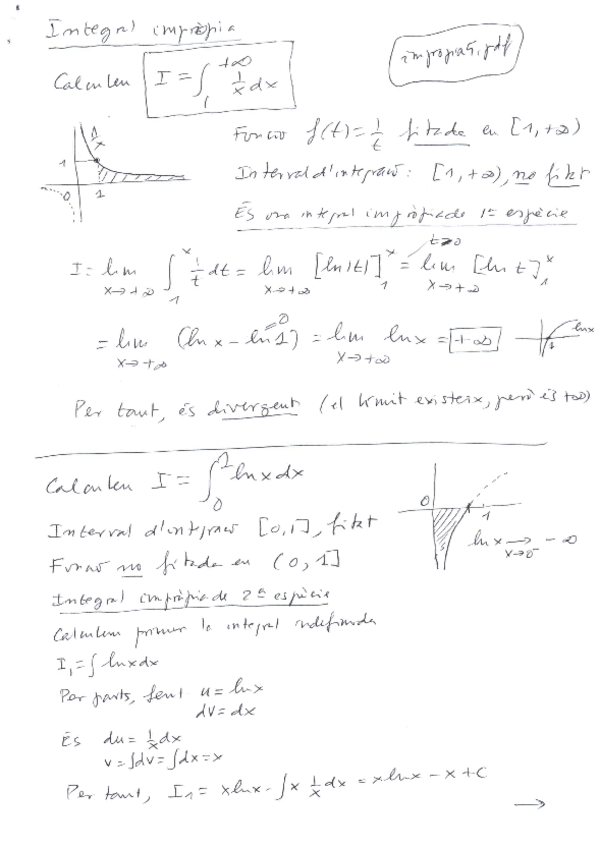 Integral impròpia
impropia5.pdf
Calculeu I = ∫₁^{+∞} 1/x dx
1/x
1
0 1
Funció f(t) = 1/t fitada en [1, +∞)
Interval d'integració: [1, +∞), no fitat
És una integral impròpia de 1ª espècie
t>0
I = lim_{x→+∞} ∫₁^x 1/t dt = lim_{x→+∞} [ln|t|]₁^x = lim_{x→+∞} [ln t]₁^x
0
= lim_{x→+∞} (ln x − ln 1) = lim_{x→+∞} ln x = +∞
ln x
1
Per tant, és divergent (el límit existeix, però és +∞)
Calculeu I = ∫₀^1 ln x dx
0
1
Interval d'integració [0,1], fitat
ln x → −∞
x→0
Funció no fitada en (0,1]
Integral impròpia de 2ª espècie
Calculem primer la integral indefinida
I₁ = ∫ ln x dx
Per parts, fent u = ln x
dv = dx
És du = 1/x dx
v = ∫dv = ∫dx = x
Per tant, I₁ = x ln x − ∫ x 1/x dx = x ln x − x + C
→